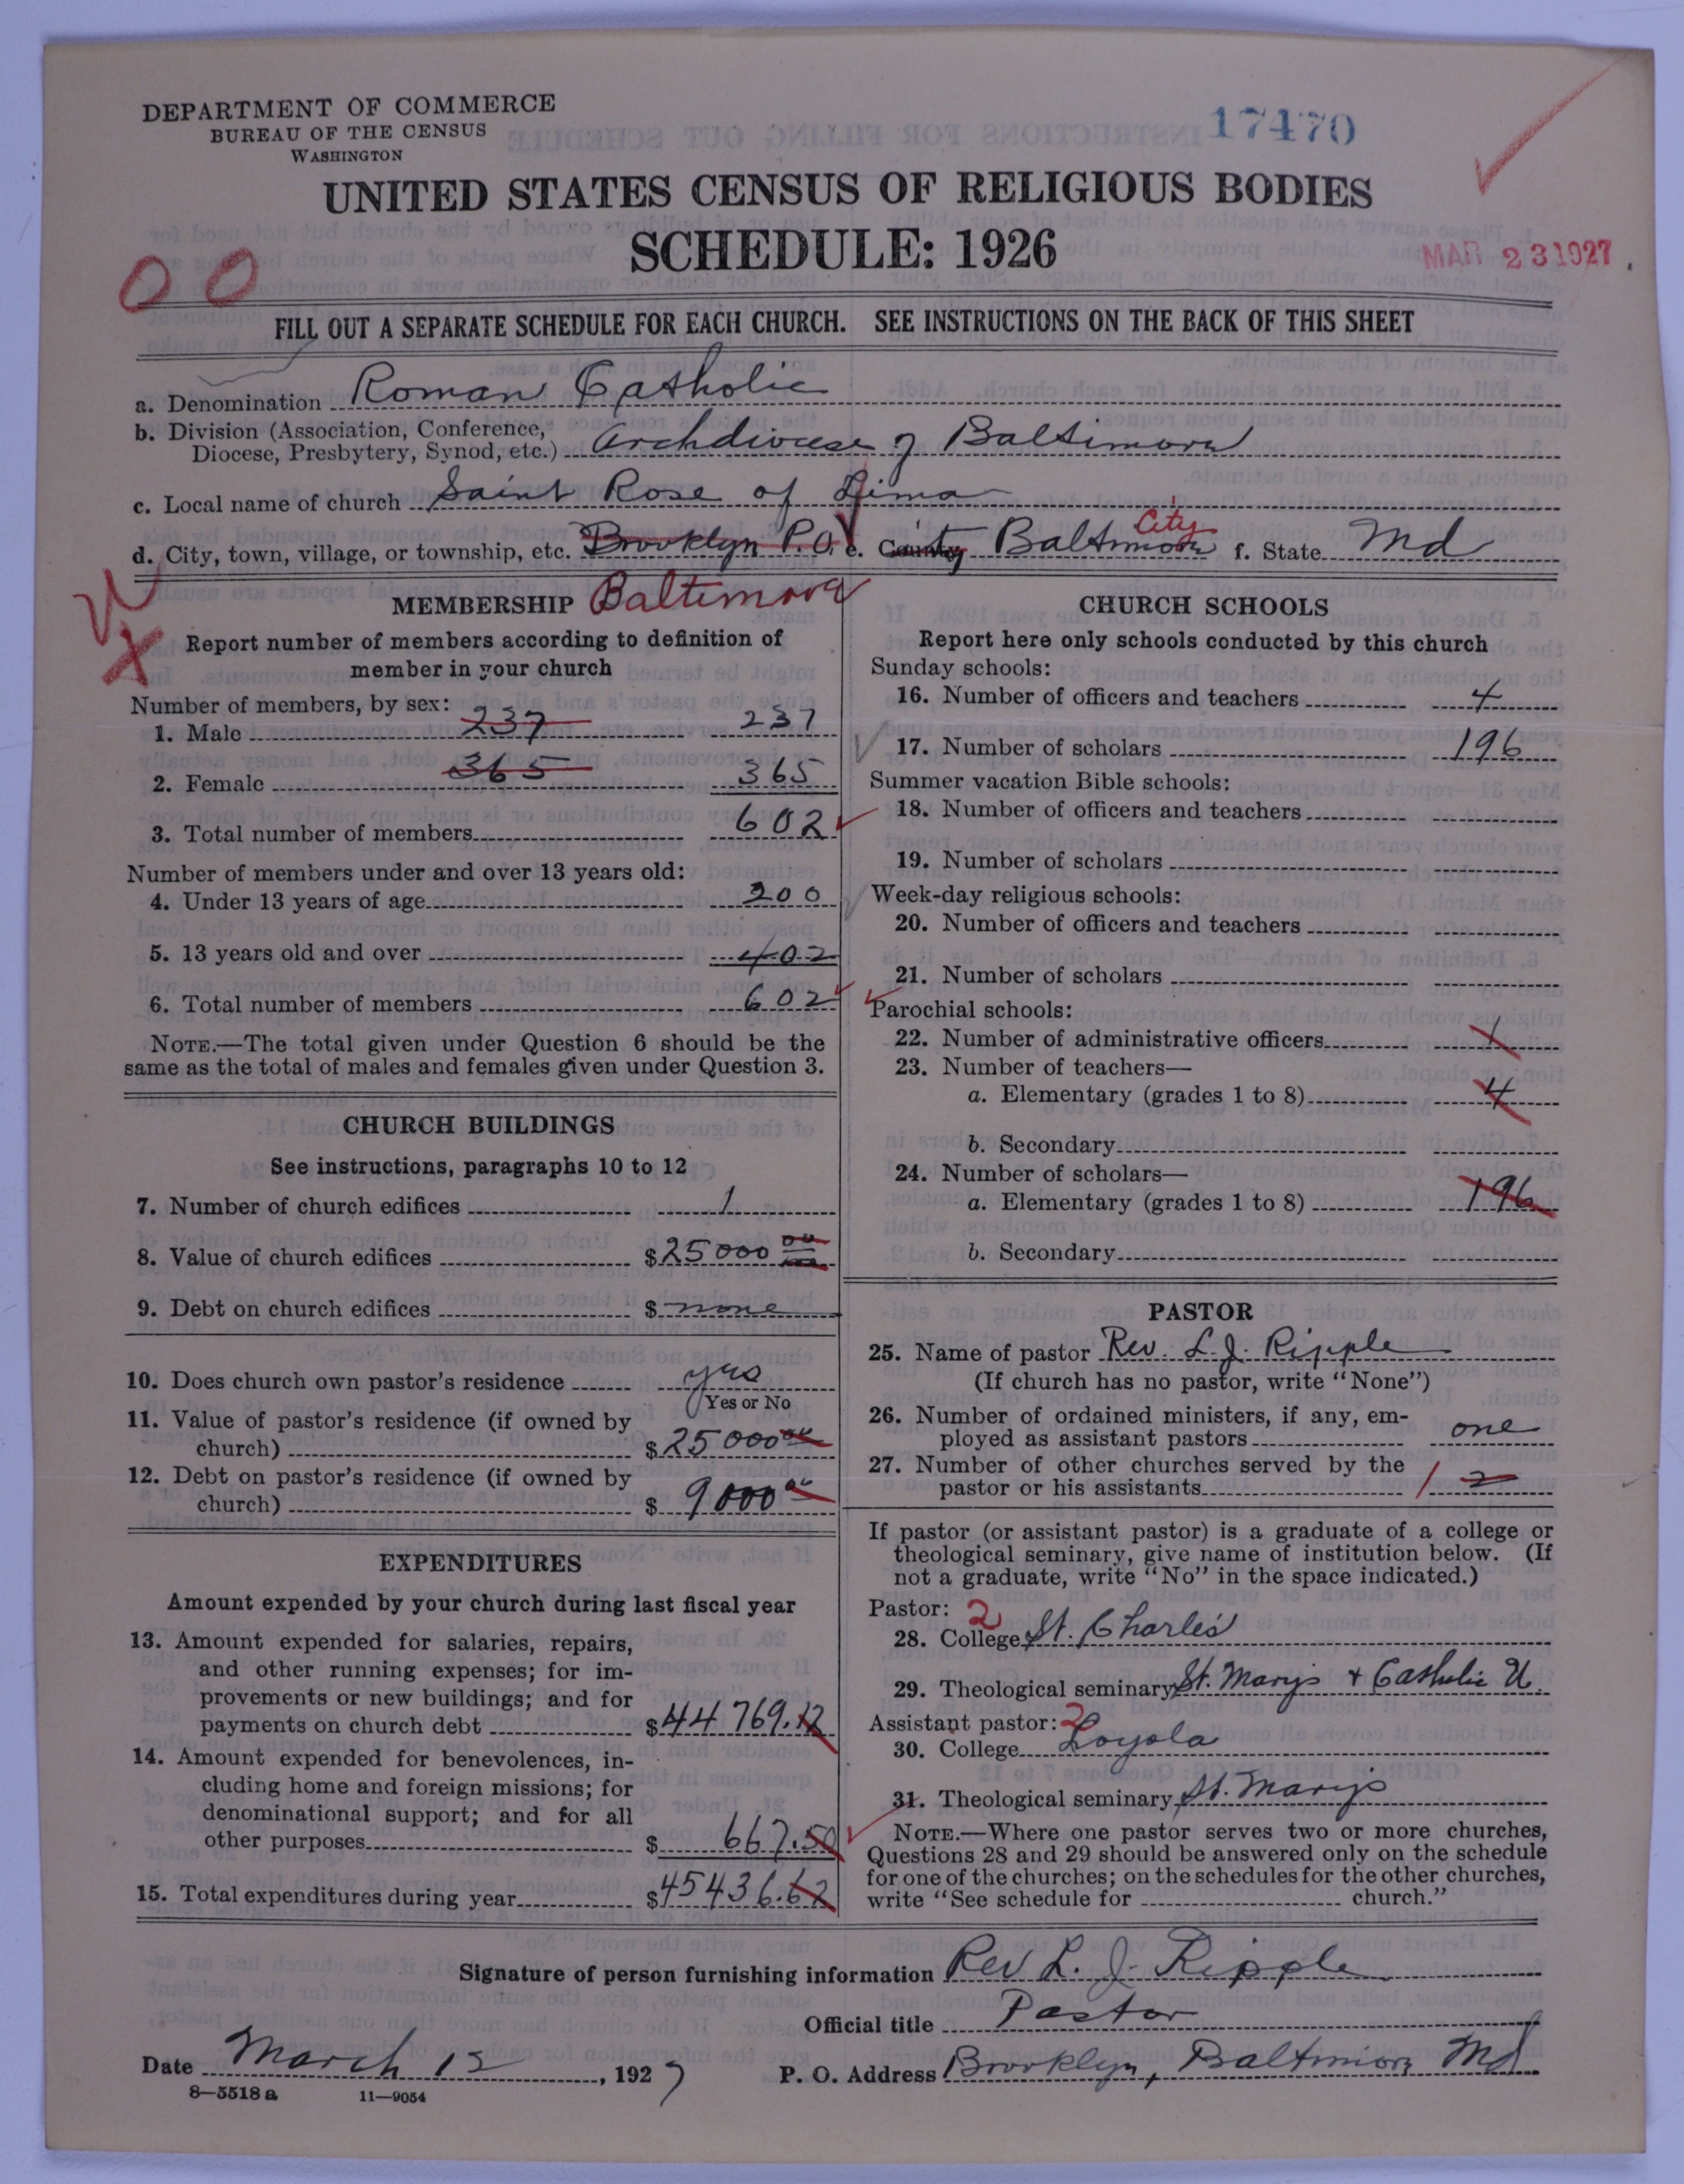 DEPARTMENT OF COMMERCE
BUREAU OF THE CENSUS
WASHINGTON
17470
UNITED STATES CENSUS OF RELIGIOUS BODIES
SCHEDULE: 1926
MAR 23 1927
00
FILL OUT A SEPARATE SCHEDULE FOR EACH CHURCH. SEE INSTRUCTIONS ON THE BACK OF THIS SHEET
a. Denomination Roman Catholic
b. Division (Association, Conference,
Diocese, Presbytery, Synod, etc.) Archdiocese of Baltimore
c. Local name of church Saint Rose of Lima
City
d. City, town, village, or township, etc. Brooklyn P.O. e. County Baltimore f. State Md
MEMBERSHIP Baltimore
Report number of members according to definition of
member in your church
Number of members, by sex:
1. Male 237 237
2. Female 365 365
3. Total number of members 602
Number of members under and over 13 years old:
4. Under 13 years of age 200
5. 13 years old and over 402
6. Total number of members 602
NOTE.—The total given under Question 6 should be the
same as the total of males and females given under Question 3.
CHURCH BUILDINGS
See instructions, paragraphs 10 to 12
7. Number of church edifices 1
8. Value of church edifices $25000 00
9. Debt on church edifices $ none
10. Does church own pastor's residence yes
Yes or No
11. Value of pastor's residence (if owned by
church) $25000 00
12. Debt on pastor's residence (if owned by
church) $ 9000 00
EXPENDITURES
Amount expended by your church during last fiscal year
13. Amount expended for salaries, repairs,
and other running expenses; for im-
provements or new buildings; and for
payments on church debt $44769.12
14. Amount expended for benevolences, in-
cluding home and foreign missions; for
denominational support; and for all
other purposes $ 667.50
15. Total expenditures during year $45436.62
CHURCH SCHOOLS
Report here only schools conducted by this church
Sunday schools:
16. Number of officers and teachers 4
17. Number of scholars 196
Summer vacation Bible schools:
18. Number of officers and teachers
19. Number of scholars
Week-day religious schools:
20. Number of officers and teachers
21. Number of scholars
Parochial schools:
22. Number of administrative officers 1
23. Number of teachers—
a. Elementary (grades 1 to 8) 4
b. Secondary
24. Number of scholars—
a. Elementary (grades 1 to 8) 196
b. Secondary
PASTOR
25. Name of pastor Rev. L. J. Ripple
(If church has no pastor, write "None")
26. Number of ordained ministers, if any, em-
ployed as assistant pastors one
27. Number of other churches served by the
pastor or his assistants 1 2
If pastor (or assistant pastor) is a graduate of a college or
theological seminary, give name of institution below. (If
not a graduate, write "No" in the space indicated.)
Pastor: 2
28. College St. Charles
29. Theological seminary St. Marys + Catholic U.
Assistant pastor: 2
30. College Loyola
31. Theological seminary St. Marys
NOTE.—Where one pastor serves two or more churches,
Questions 28 and 29 should be answered only on the schedule
for one of the churches; on the schedules for the other churches,
write "See schedule for church."
Signature of person furnishing information Rev L. J. Ripple
Official title Pastor
Date March 12, 1927 P. O. Address Brooklyn, Baltimore Md
8—5518 a 11—9054